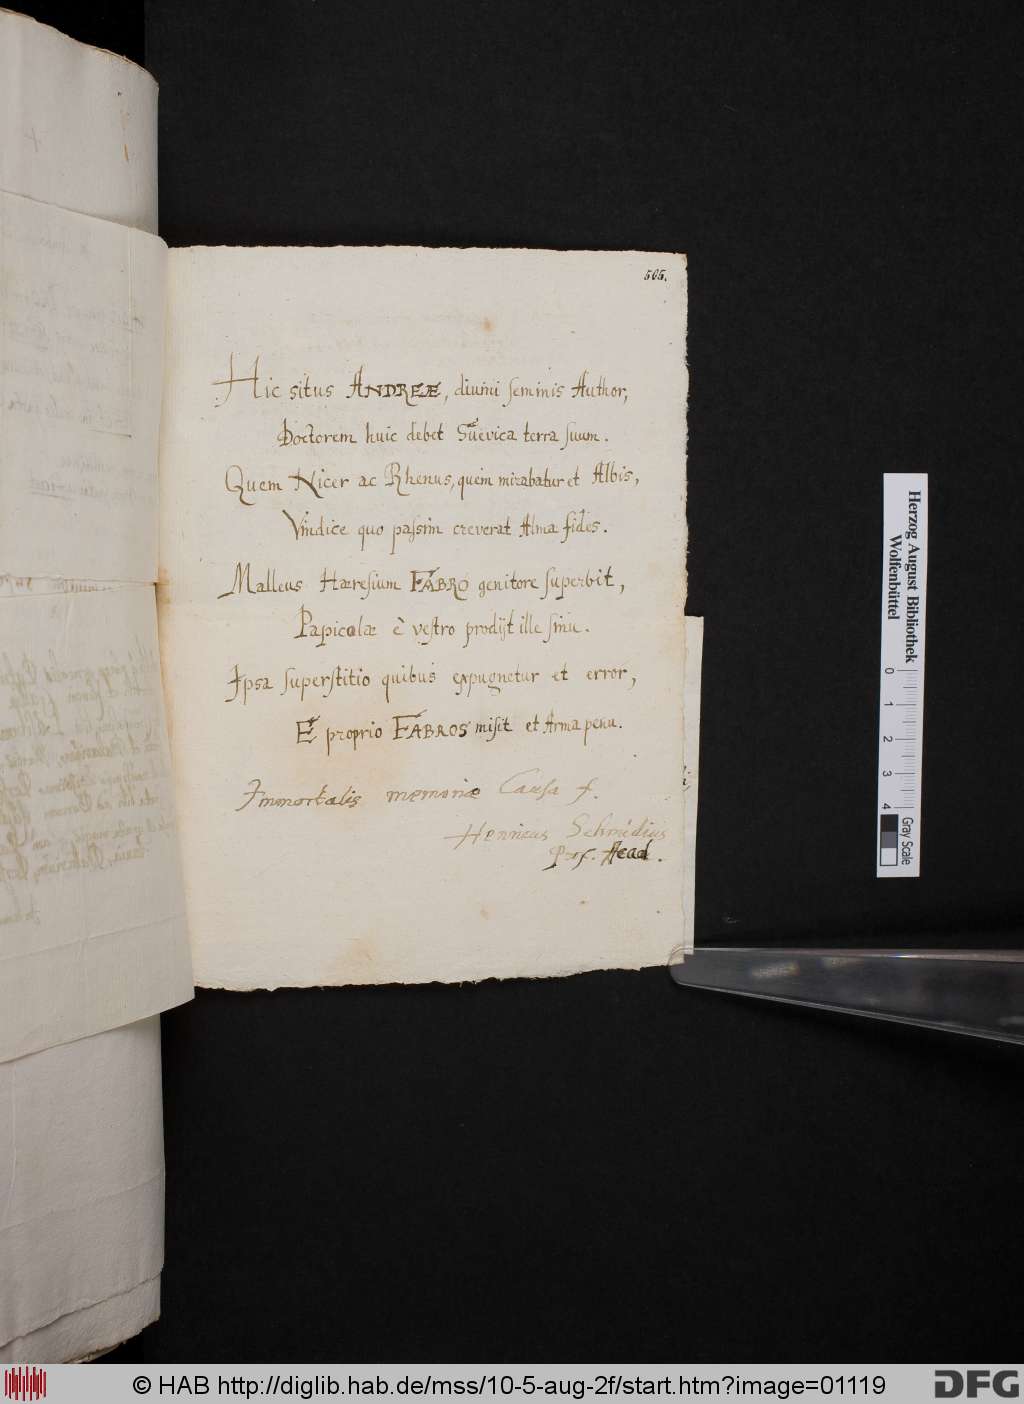 505.
Hic situs ANDREÆ, divini seminis Author,
Doctorem huic debet Suevica terra suum.
Quem Nicer ac Rhenus, quem mirabatur et Albis,
Vindice quo passim creverat Alma fides.
Malleus Hæresium FABRO genitore superbit,
Papicolæ è vestro prodijt ille sinu.
Ipsa superstitio quibus expugnetur et error,
E proprio FABROS misit et Arma penu.
Immortalis memoriæ Causa f.
Henricus Schmidius
Prof. Acad.
Herzog August Bibliothek
Wolfenbüttel
0 1 2 3 4
Gray Scale
© HAB http://diglib.hab.de/mss/10-5-aug-2f/start.htm?image=01119
DFG